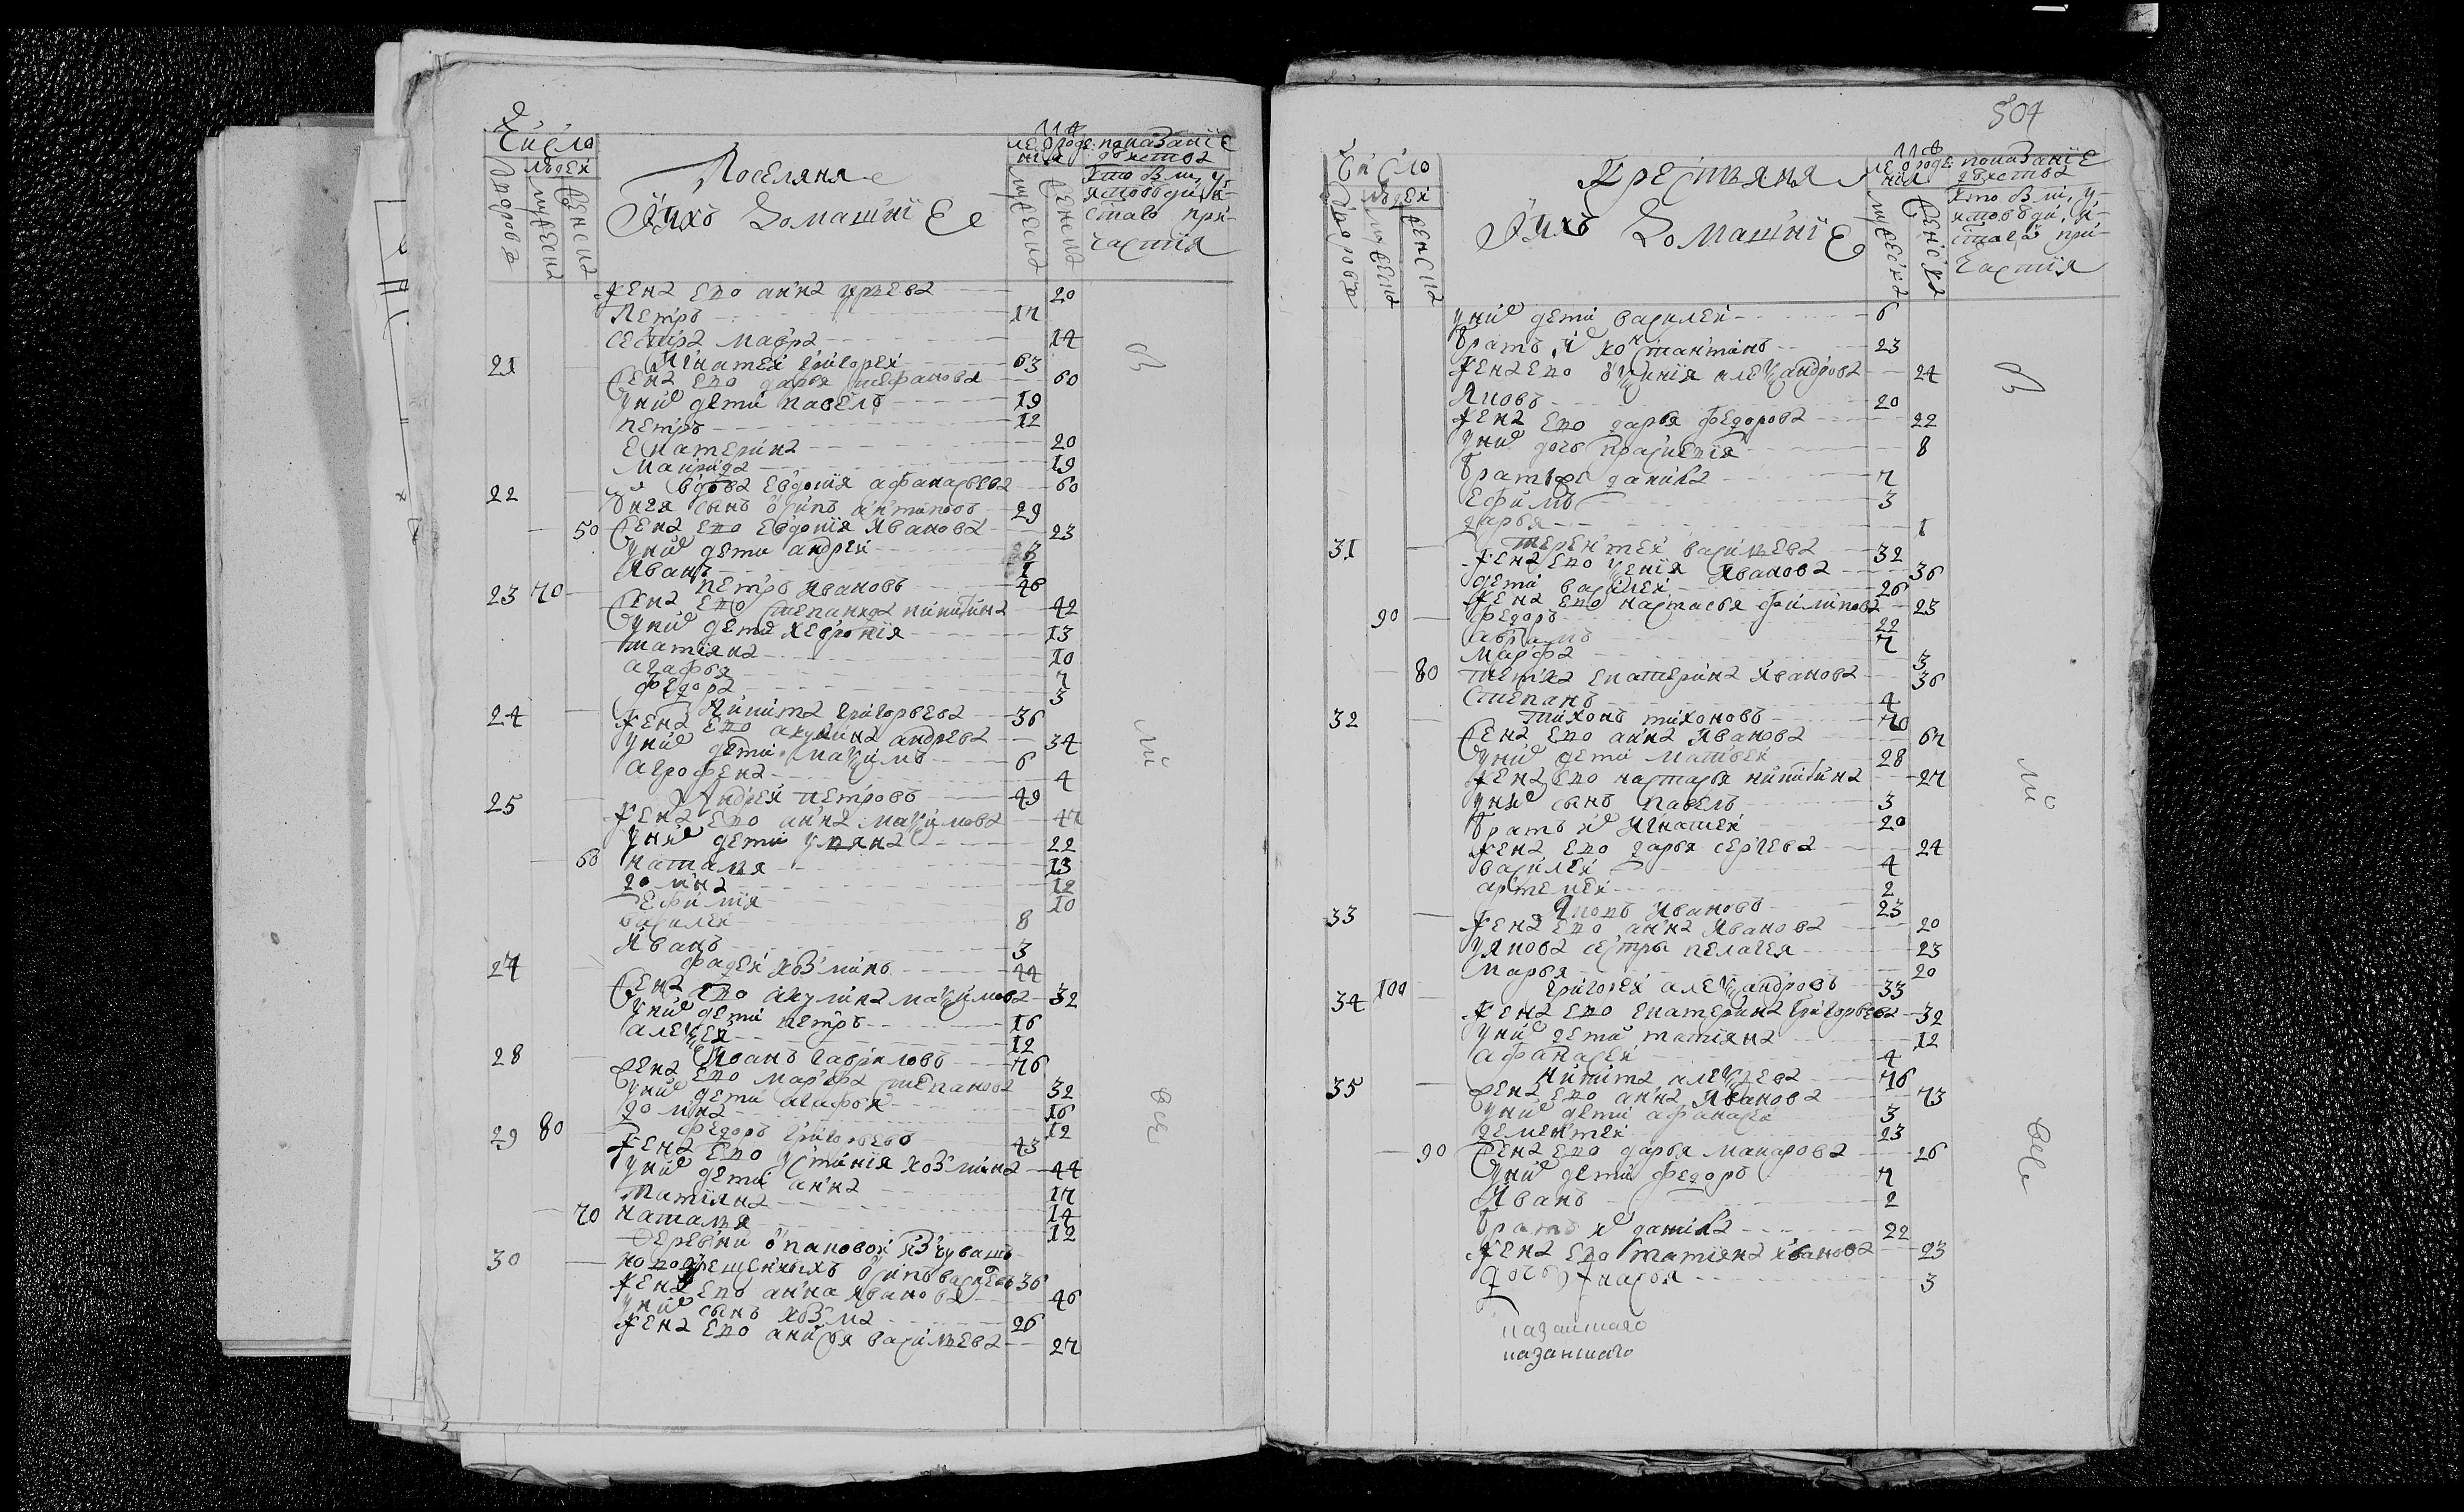 Число
людей
дворовъ
мужеска
женска
Поселяне
И ихъ Домашнїе
лѣ о роде
нїя
мужеска
женска
показанїе
действа
кто былъ у
исповѣди и
стаго при-
частїя
жена ево анна 20
Петръ 17
сестра мавра 14
21 Игнатей григорей 63
жена ево дарья стефанова 60
у них дети павелъ 19
петръ 12
Екатерина 20
19
22 вдова евдокия афанасьева 60
у нея сынъ осипъ антиповъ 29
50 жена ево евдокия иванова 23
у них дети андрей 3
иванъ 1
23 70 петръ ивановъ 46
жена ево степанида никитина 42
у них дети хеврония 13
татияна 10
агафья 7
федора 3
24 Никита григорьевъ 36
жена ево акулина андрева 34
у них дети максимъ 6
агрофена 4
25 Андрей петровъ 49
жена ево анна максимова 47
у них дети ульяна 22
60 наталья 13
домна 12
ефимия 10
василей 8
иванъ 3
27 фадей козминъ 44
жена ево акулина максимова 32
у них дети петръ 16
алексей 12
28 Иванъ гавриловъ 76
жена ево марфа степанова 32
у них дети агафья 16
домна 12
29 80 федоръ григорьевъ 43
жена ево устиния козмина 44
у них дети анна 17
татияна 14
70 наталья 12
деревни опановой из чувашъ
30 новокрещенныхъ осипъ васильевъ 36
жена ево анна иванова 46
у них сынъ козма 26
жена ево анисья васильева 27
504
Число
людей
дворовъ
мужеска
женска
Крестьяня
И ихъ Домашнїе
лѣ о роде
нїя
мужеска
женска
показанїе
действа
кто былъ у
исповѣди и
стаго при-
частїя
у них дети василей 6
братъ и константинъ 23
жена ево ксения александрова 24
Яковъ 20
жена ево дарья федорова 22
у них дочь 8
братья данила 7
ефимъ 3
дарья 1
31 терентей васильевъ 32
жена ево ксения иванова 36
дети василей 26
жена ево настасья филипова 23
90 федоръ 22
абрамъ 7
марфа 3
80 тетка екатерина иванова 36
степанъ 4
32 тихонъ тихоновъ 70
жена ево анна иванова 67
у них дети матвей 28
жена ево настасья никитина 27
у них сынъ павелъ 3
братъ и игнатей 20
жена ево дарья сергева 24
василей 4
артемей 2
33 Яковъ ивановъ 23
жена ево анна иванова 20
у якова сестры пелагея 23
марья 20
34 100 григорей александровъ 33
жена ево екатерина григорьева 32
у них дети татияна 12
афанасей 4
35 Никита алексеевъ 76
жена ево анна иванова 73
у них дети афанасей 3
дементей 23
90 жена ево дарья макарова 26
у них дети федоръ 7
иванъ 2
братъ и данила 22
жена ево татияна иванова 23
дочь 3